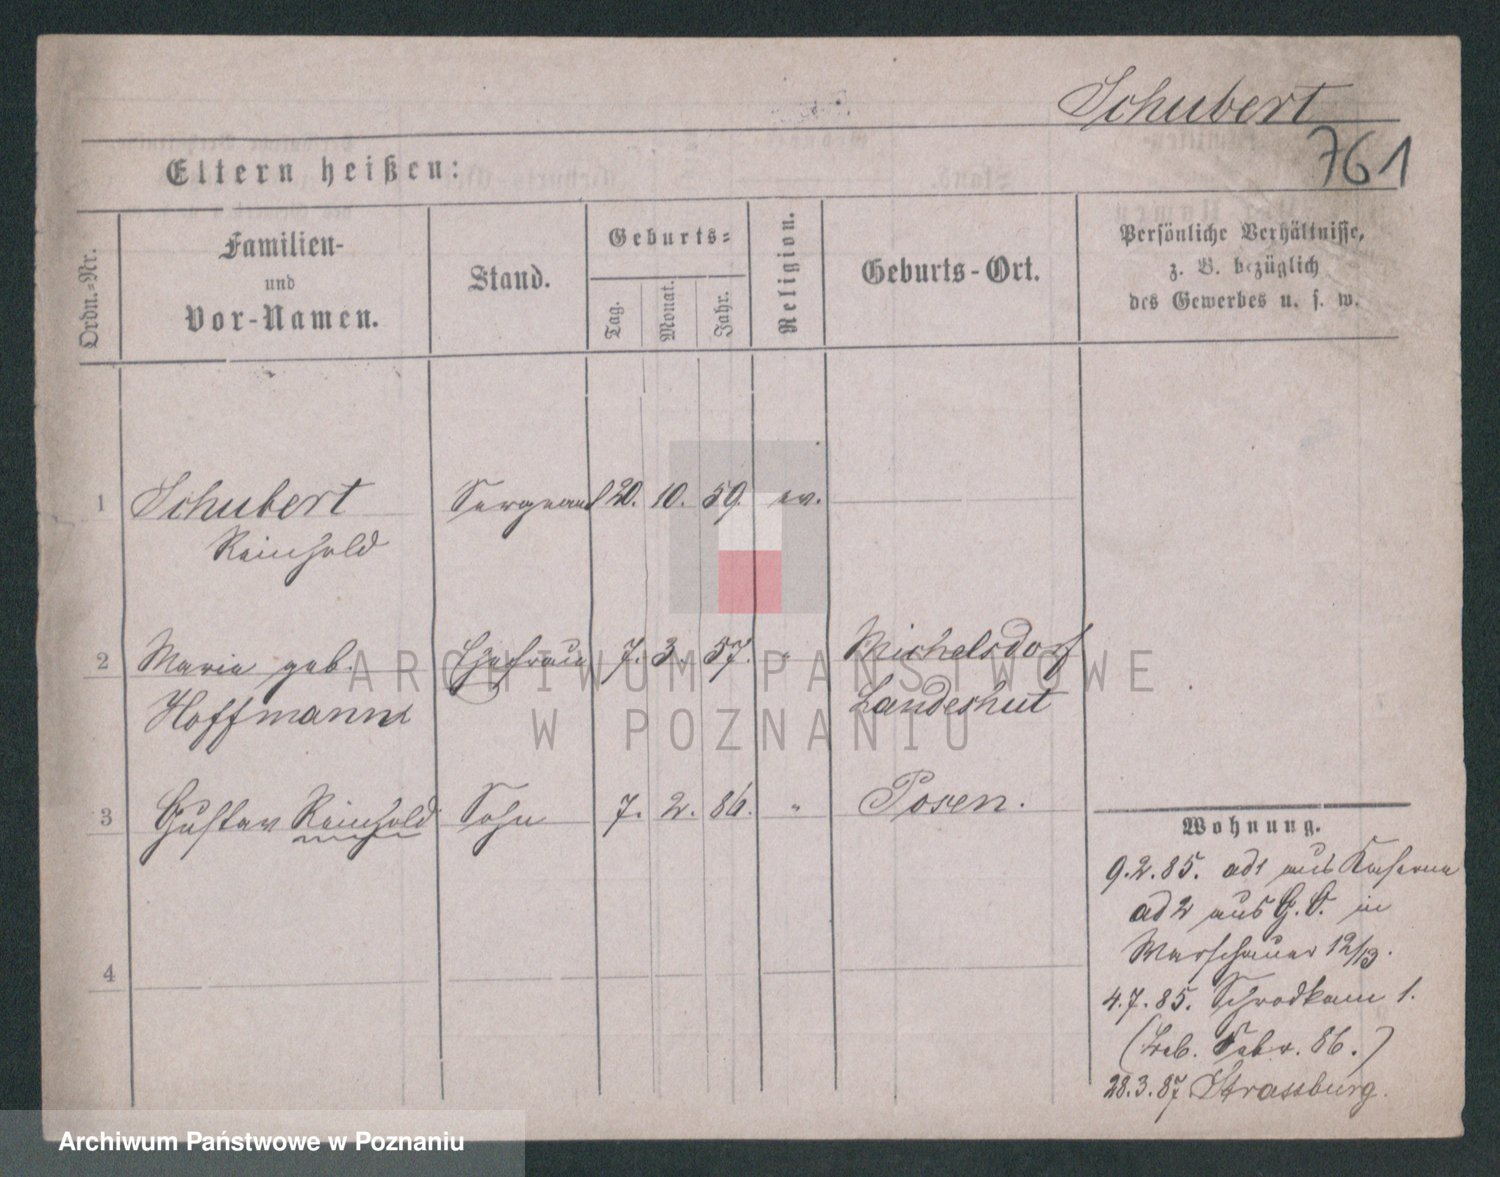 Schubert
761
Eltern heißen:
Ordn.-Nr.
Familien-
und
Vor-Namen.
Stand.
Geburts-
Tag.
Monat.
Jahr.
Religion.
Geburts-Ort.
Persönliche Verhältnisse,
z. B. bezüglich
des Gewerbes u. s. w.
1 Schubert Sergeant 20. 10. 59. ev.
Reinhold
2 Maria geb. Ehefrau 7. 3. 57. " Michelsdorf
Hoffmann Landeshut
3 Gustav Reinhold Sohn 7. 2. 86. " Posen.
4
Wohnung.
9.2.85. ad1 aus Kaserne
ad 2 aus G.O. in
Warschauer 12/13.
4.7.85. Schrodkam 1.
Febr. 86.)
28.3.87 Strassburg.
ARCHIWUM PAŃSTWOWE
W POZNANIU
Archiwum Państwowe w Poznaniu